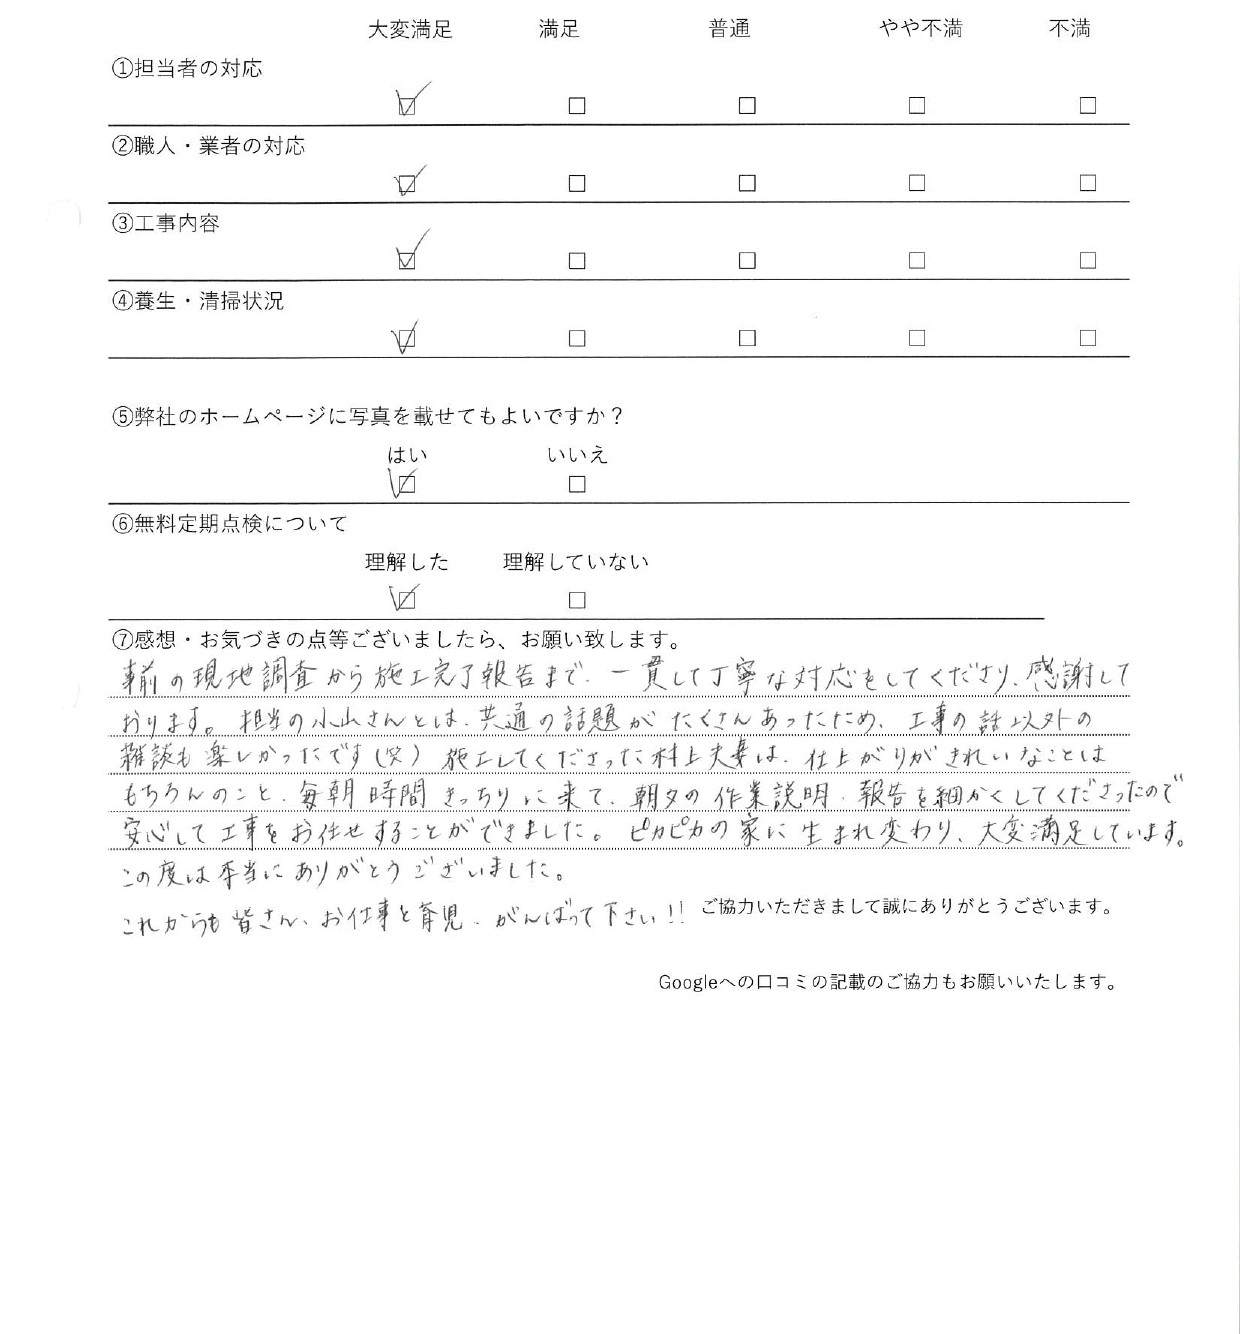 大変満足 満足 普通 やや不満 不満
①担当者の対応
☑ ☐ ☐ ☐ ☐
②職人・業者の対応
☑ ☐ ☐ ☐ ☐
③工事内容
☑ ☐ ☐ ☐ ☐
④養生・清掃状況
☑ ☐ ☐ ☐ ☐
⑤弊社のホームページに写真を載せてもよいですか？
はい いいえ
☑ ☐
⑥無料定期点検について
理解した 理解していない
☑ ☐
⑦感想・お気づきの点等ございましたら、お願い致します。
事前の現地調査から施工完了報告まで、一貫して丁寧な対応をしてくださり、感謝して
おります。担当の小山さんとは、共通の話題がたくさんあったため、工事の話以外の
雑談も楽しかったです(笑) 施工してくださった村上夫妻は、仕上がりがきれいなことは
もちろんのこと、毎朝時間きっちりに来て、朝夕の作業説明・報告を細かくしてくださったので
安心して工事をお任せすることができました。ピカピカの家に生まれ変わり、大変満足しています。
この度は本当にありがとうございました。
これからも皆さん、お仕事と育児、がんばって下さい!! ご協力いただきまして誠にありがとうございます。
Googleへの口コミの記載のご協力もお願いいたします。